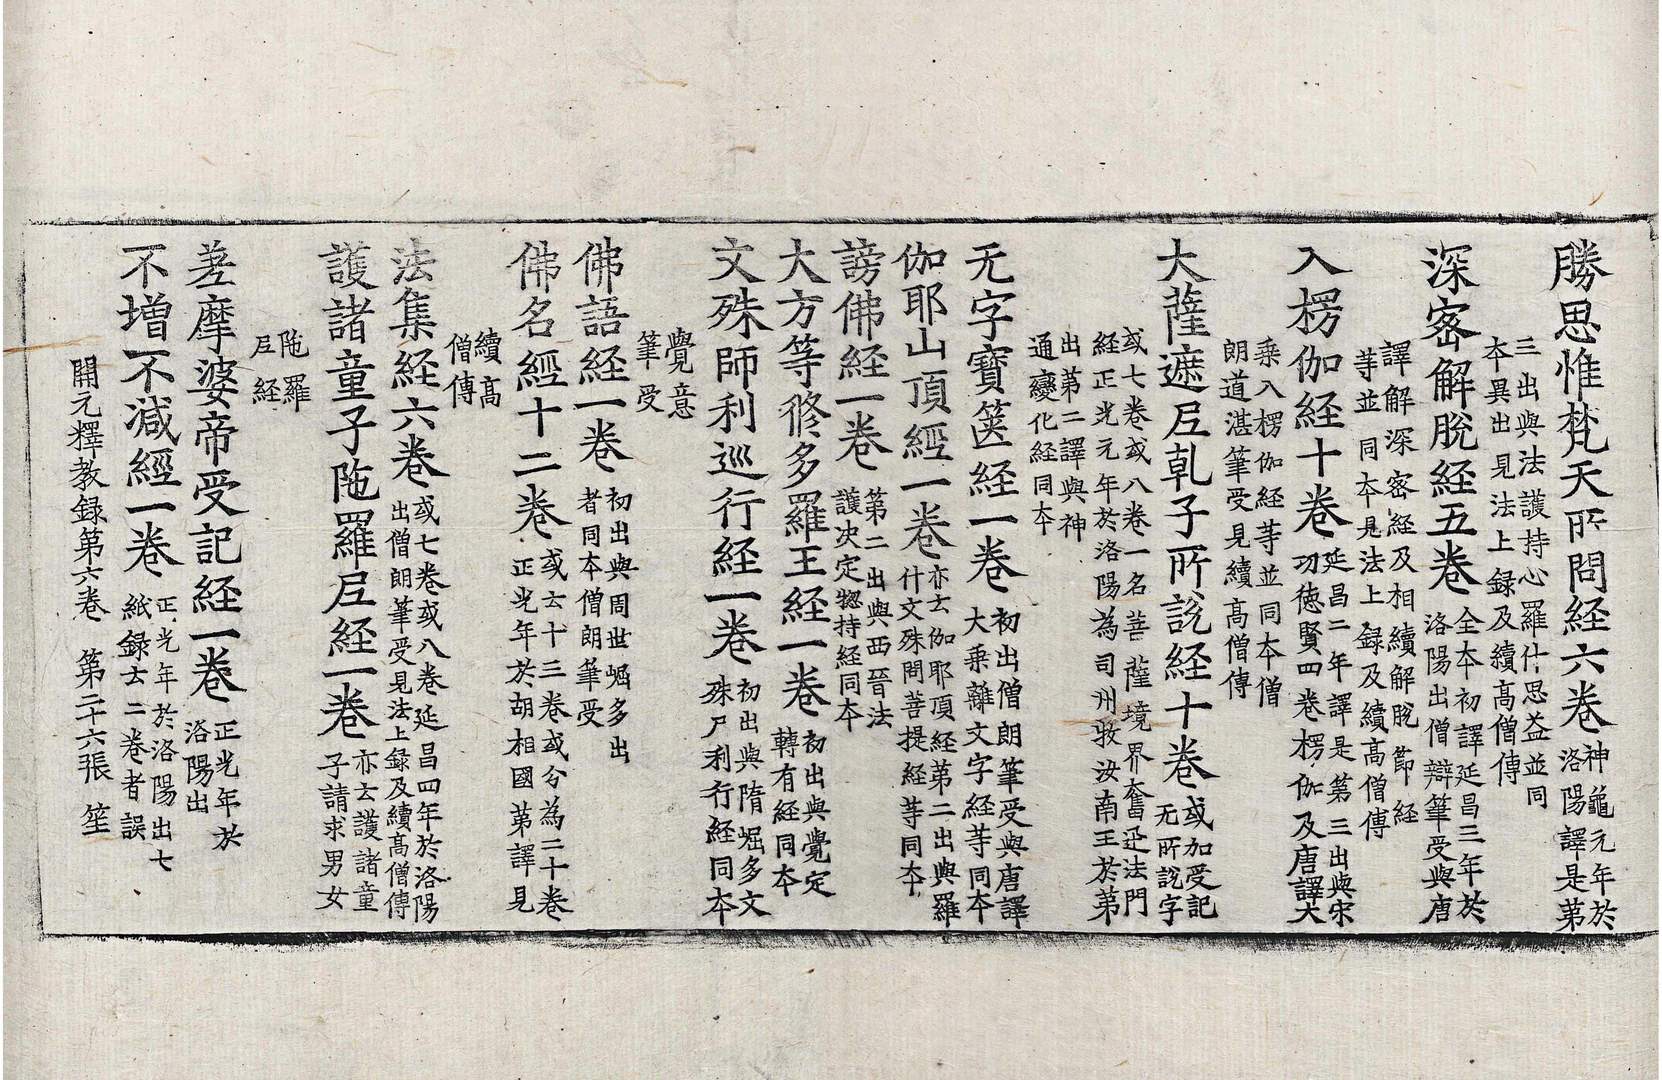 勝思惟梵天所問経六巻神龜元年於
洛陽譯是第
三出與法護持心羅什思益並同
夲異出見法上録及續髙僧傳
深宻解脫経五巻全夲初譯延昌三年於
洛陽出僧辯筆受與唐
譯解深宻経及相續解脫節経
等並同夲見法上録及續髙僧傳
入楞伽経十巻延昌二年譯是第三出與宋
功徳賢四巻楞伽及唐譯大
乗入楞伽経等並同夲僧
朗道湛筆受見續髙僧傳
大薩遮𡰱乹子所說経十巻或加受記
无所說字
或七巻或八巻一名菩薩境界奮迅法門
経正光元年於洛陽為司州牧汝南王於第
出第二譯與神
通變化経同夲
无字寶篋経一巻初出僧朗筆受與唐譯
大乗離文字経等同夲
伽耶山頂經一巻亦云伽耶頂経第二出與羅
什文殊問菩提経等同夲
謗佛経一巻第二出與西晉法
護决定惣持経同夲
大方等修多羅王経一巻初出與覺定
轉有経同夲
文殊師利巡行経一巻初出與隋崛多文
殊尸利行経同夲
覺意
筆受
佛語経一巻初出與周世崛多出
者同夲僧朗筆受
佛名經十二巻或云十三巻或分為二十巻
正光年於胡相國第譯見
續髙
僧傳
法集経六巻或七巻或八巻延昌四年於洛陽
出僧朗筆受見法上録及續髙僧傳
護諸童子陁羅𡰱経一巻亦云護諸童
子請求男女
陁羅
𡰱経
差摩婆帝受記経一巻正光年於
洛陽出
不増不減經一巻正光年於洛陽出七
紙録云二巻者誤
開元釋教録第六巻　第二十六張　笙